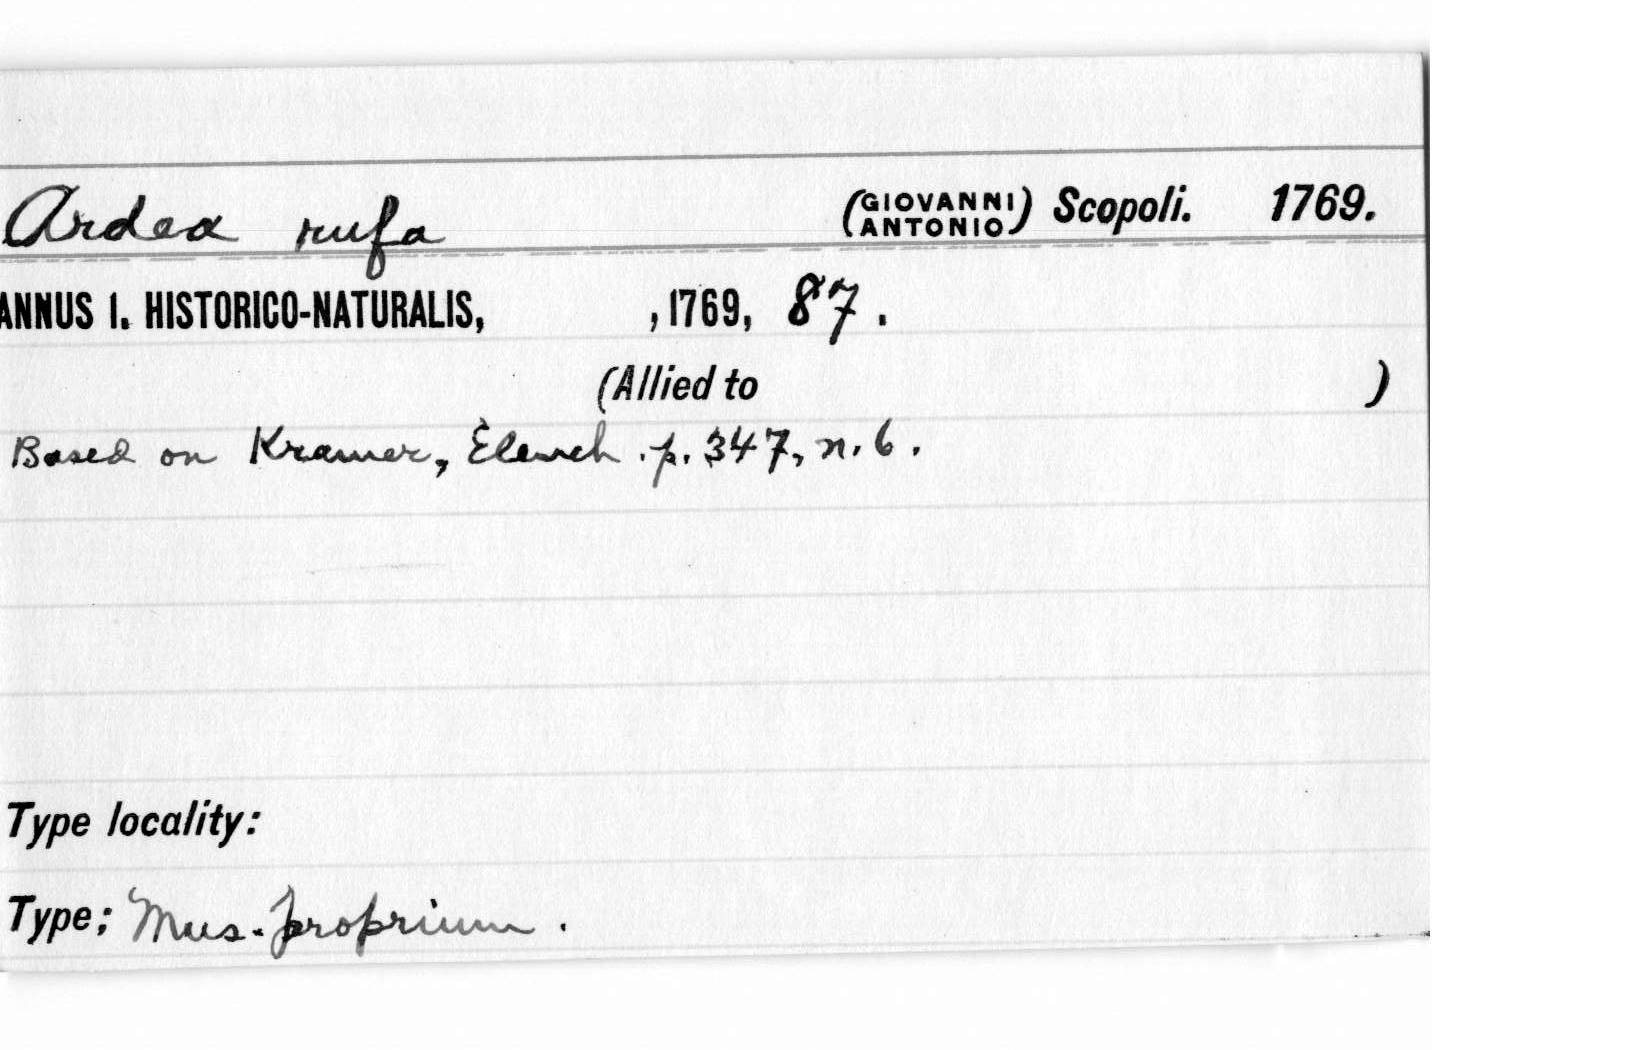 Ardea rufa (GIOVANNI ANTONIO) Scopoli. 1769.
ANNUS I. HISTORICO-NATURALIS, , 1769, 87.
(Allied to )
Based on Kramer, Elench. p. 347, n. 6.
Type locality:
Type; Mus. proprium.